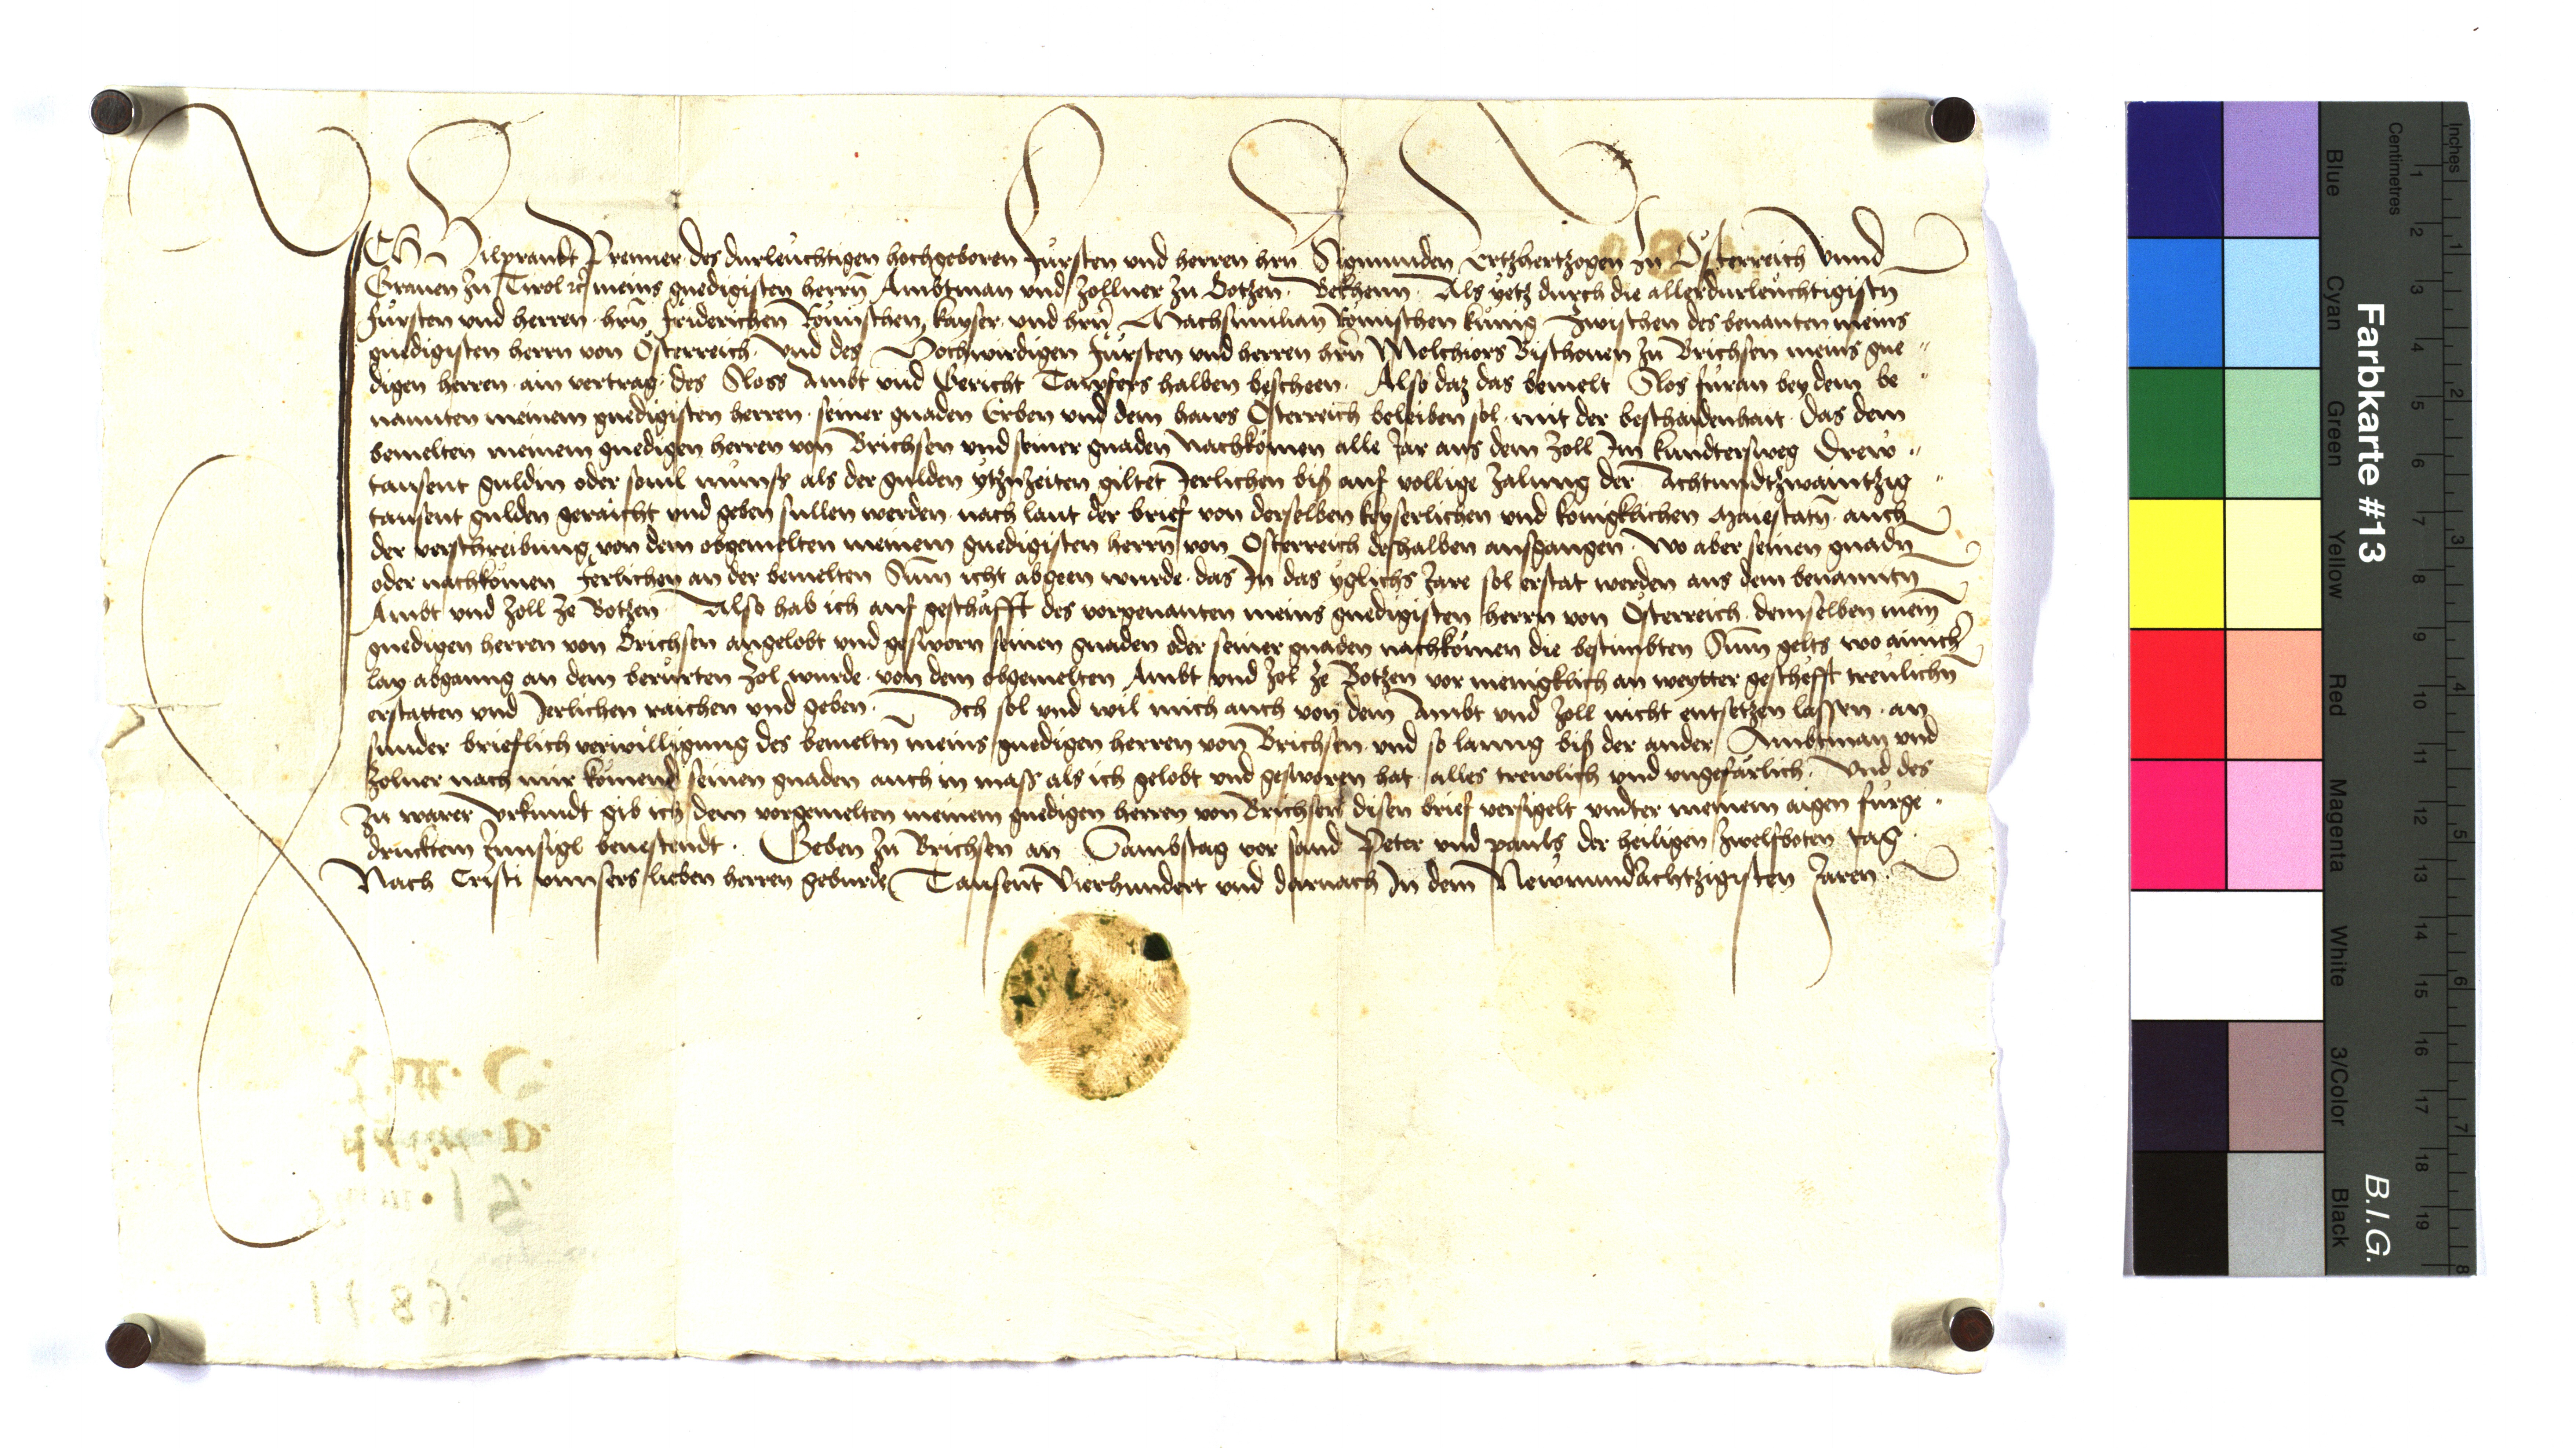 ICh Hilprankt Prenner des durleuchtigen hochgeboren Fürsten vnd herren hrn Sigmunden Ertzhertzogen zu Österreich Vnnd
Grauen zu Tirol rc meins gnedigisten herrn Ambtman vnd Zollner zu Botzen. Bekhenn. Als yetz durch die allerdurleuchtigistn
Fürsten vnd herren hrn Friderichen Römischen kayser vnd hrn Machsimilian Römischen künig Zwischen des benanten meins
gnedigisten herrn von Österreich. Vnd des Hochwirdigen Fürsten vnd herren hrn Melchiors Bischouen zu Brichsen meins gne
digen herren ain vertrag des Sloss Ambt vnd Gericht Tawfers halben bescheen. Also daz das bemelt Slos füran bey dem be
nannten meinem gnedigisten herren seiner gnaden Erben vnd dem haws Österreich beleiben sol mit der beschaidenhait. Das dem
bemelten meinem gnedigen herren von Brichsen vnd seiner gnaden Nachkomen alle Jar aus dem Zoll Im kundtersweg Drew
tausent guldin oder souil münss als der gulden ytzuzeiten giltet Jerlichen biß auf vollige Zalung der Achtundtzwaintzig
tausent gulden geraicht vnd geben sullen werden nach laut der brief von derselben keyserlichen vnd königklichen Maiestatn auch
der verschreibung von dem obgemelten meinem gnedigisten herrn von Österreich deshalben ausgangen. Wo aber seinen gnadn
oder nachkomen Jerlichen an der bemelten Sum icht abgeen wurde. das In das yglichs Jare sol erstat werden aus dem benanntn
Ambt vnd Zoll ze Botzen. Also hab ich auf geschäfft des vorgenanten meins gnedigisten herrn von Österreich demselben mein
gnedigen herren von Brichsen angelobt vnd gesworn seinen gnaden oder seiner gnaden nachkomen die bestimbten Sum gelts wo ainich
lay abganng an dem berürten Zol wurde von dem obgemelten Ambt vnd Zol ze Botzen vor menigklich an weytter geschefft treulichn
erstatten vnd Jerlichen raichen vnd geben. Ich sol vnd wil mich auch von dem Ambt vnd Zoll nicht entsetzen lassen an
sunder brieflich verwilligung des bemeltn meins gnedigen herren von Brichsen vnd so lanng biß der ander Ambtman vnd
Zolner nach mir komend seinen gnaden auch in mass als ich gelobt vnd gesworen hat alles trewlich vnd vngefärlich. Vnd des
Zu warer Vrkundt gib ich dem vorgemelten meinem gnedigen herren von Brichsen disen brief versigelt vndter meinem aigen fürge
drucktem Innsigl beuestendt. Geben zu Brichsen an Sambstag vor sand Peter vnd pauls der heiligen Zwelfboten tag
Nach Cristi vnnsers lieben herren geburde Tausent Vierhundert vnd darnach In dem Newnundachtzigisten Jaren
Farbkarte #13
B.I.G.
Inches
Centimetres
Blue
Cyan
Green
Yellow
Red
Magenta
White
3/Color
Black
1 2 3 4 5 6 7 8 9 10 11 12 13 14 15 16 17 18 19
1 2 3 4 5 6 7 8